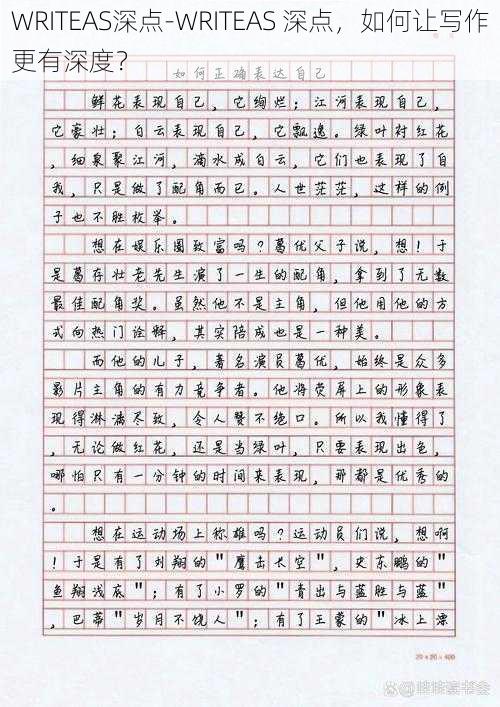 WRITEAS深点-WRITEAS 深点，如何让写作
更有深度？
如何正确表达自己
鲜花表现自己，它绚烂；江河表现自己，
它豪壮；白云表现自己，它飘逸。绿叶衬红花
，细泉聚江河，滴水成白云，它们也表现了自
我，只是做了配角而已。人世茫茫，这样的例
子也不胜枚举。
想在娱乐圈致富吗？葛优父子说，想！于
是葛存壮老先生演了一生的配角，拿到了无数
最佳配角奖。虽然他不是主角，但他用他的方
式向热门诠释，其实陪成也是一种美。
而他的儿子，著名演员葛优，始终是众多
影片主角的有力竞争者。他将荧屏上的形象表
现得淋漓尽致，令人赞不绝口。所以我懂得了
，无论做红花，还是当绿叶，只要表现出色，
哪怕只有一分钟的时间来表现，那都是优秀的
。
想在运动场上称雄吗？运动员们说，想啊
！于是有了刘翔的"鹰击长空"，史东鹏的"
鱼翔浅底"；有了小罗的"青出与蓝胜与蓝"
，巴蒂"岁月不饶人"；有了王蒙的"冰上漂
20×20=400